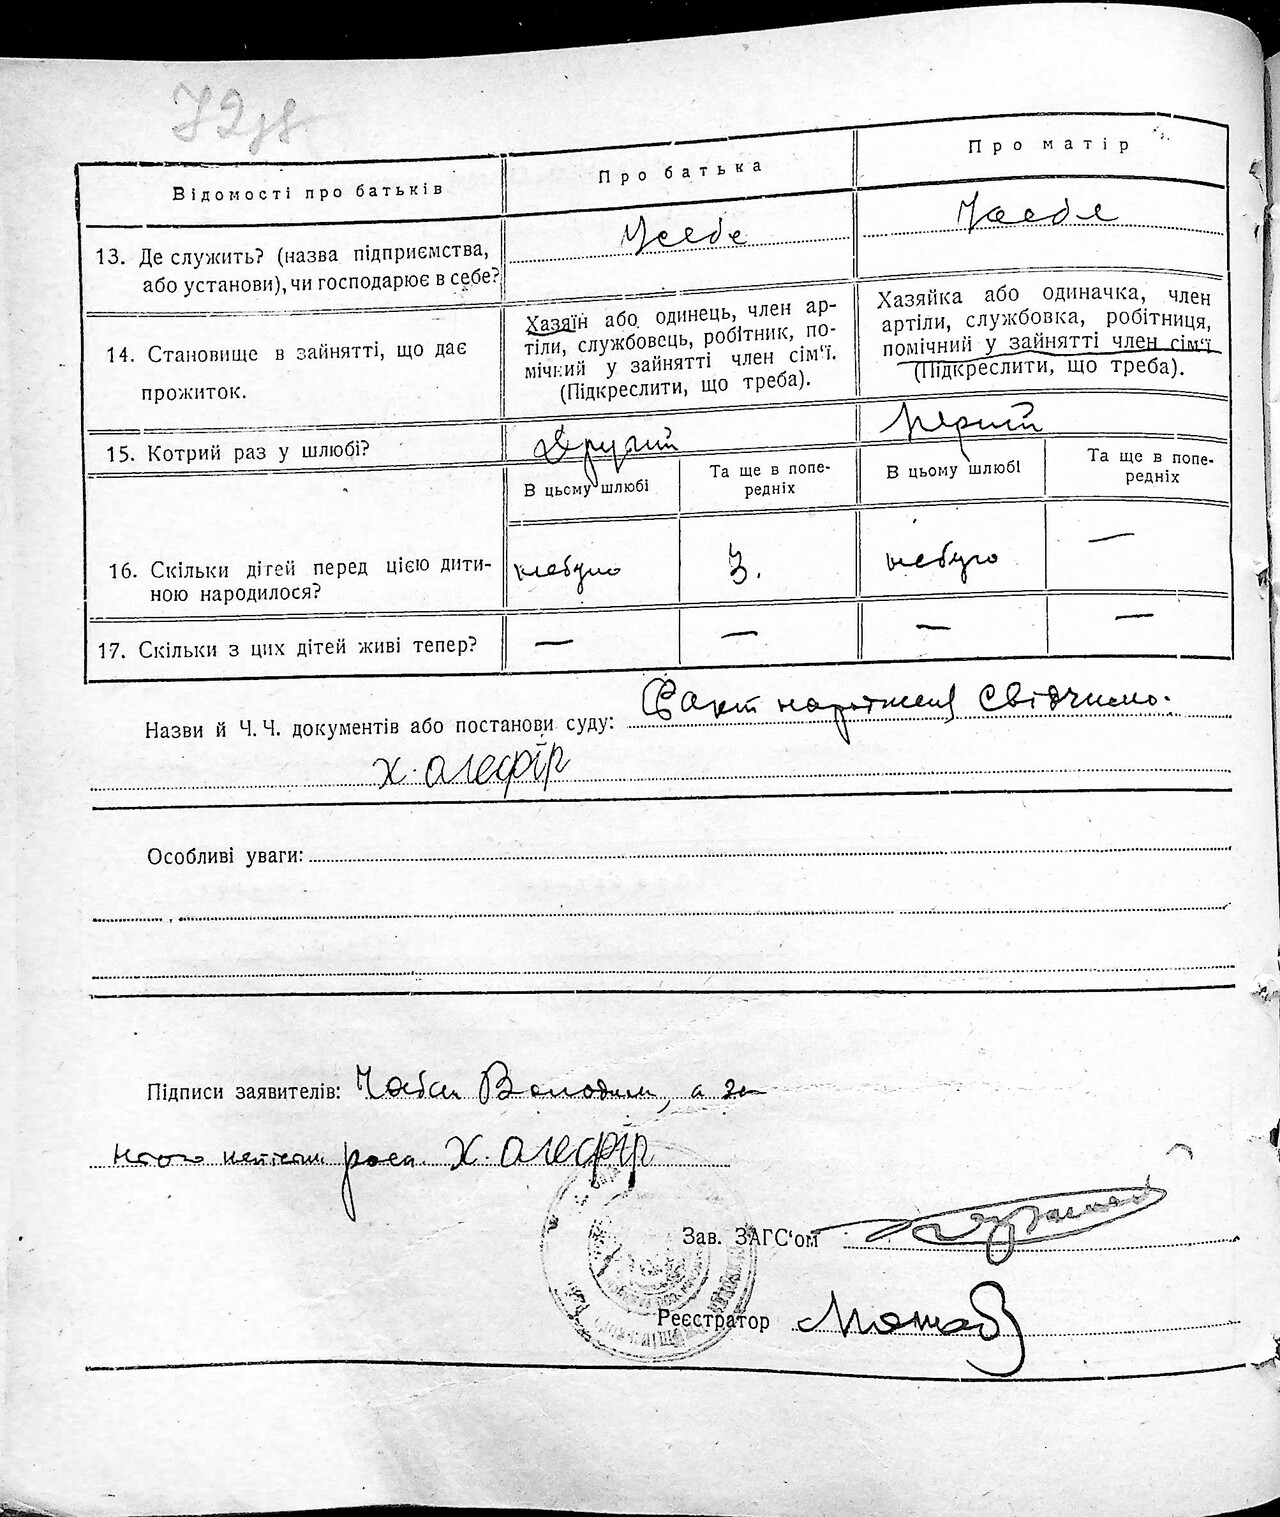 72
Відомості про батьків
Про батька
Про матір
13. Де служить? (назва підприємства, або установи), чи господарює в себе?
Усебе
Усебе
14. Становище в зайнятті, що дає прожиток.
Хазяїн або одинець, член ар-
тіли, службовець, робітник, по-
мічний у зайнятті член сім'ї.
(Підкреслити, що треба).
Хазяйка або одиначка, член
артіли, службовка, робітниця,
помічний у зайнятті член сім'ї
(Підкреслити, що треба).
15. Котрий раз у шлюбі?
Другий
Перший
В цьому шлюбі
Та ще в попе-
редніх
В цьому шлюбі
Та ще в попе-
редніх
16. Скільки дітей перед цією дити-
ною народилося?
небуло
3.
небуло
—
17. Скільки з цих дітей живі тепер?
—
—
—
—
Назви й Ч. Ч. документів або постанови суду: Факт народженя свідчимо.
Х. Олефір
Особливі уваги:
Підписи заявителів: Чабан Володим, а за
нього неписьм роспи. Х. Олефір
Зав. ЗАГС'ом
Реєстратор